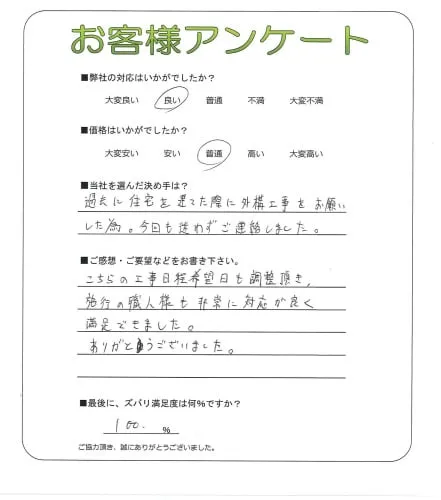 お客様アンケート
■弊社の対応はいかがでしたか？
大変良い 良い 普通 不満 大変不満
■価格はいかがでしたか？
大変安い 安い 普通 高い 大変高い
■当社を選んだ決め手は？
過去に住宅を建てた際に外構工事をお願い
した為。今回も迷わずご連絡しました。
■ご感想・ご要望などをお書き下さい。
こちらの工事日程希望日も調整頂き、
施行の職人様も非常に対応が良く
満足できました。
ありがとうございました。
■最後に、ズバリ満足度は何%ですか？
100. %
ご協力頂き、誠にありがとうございました。